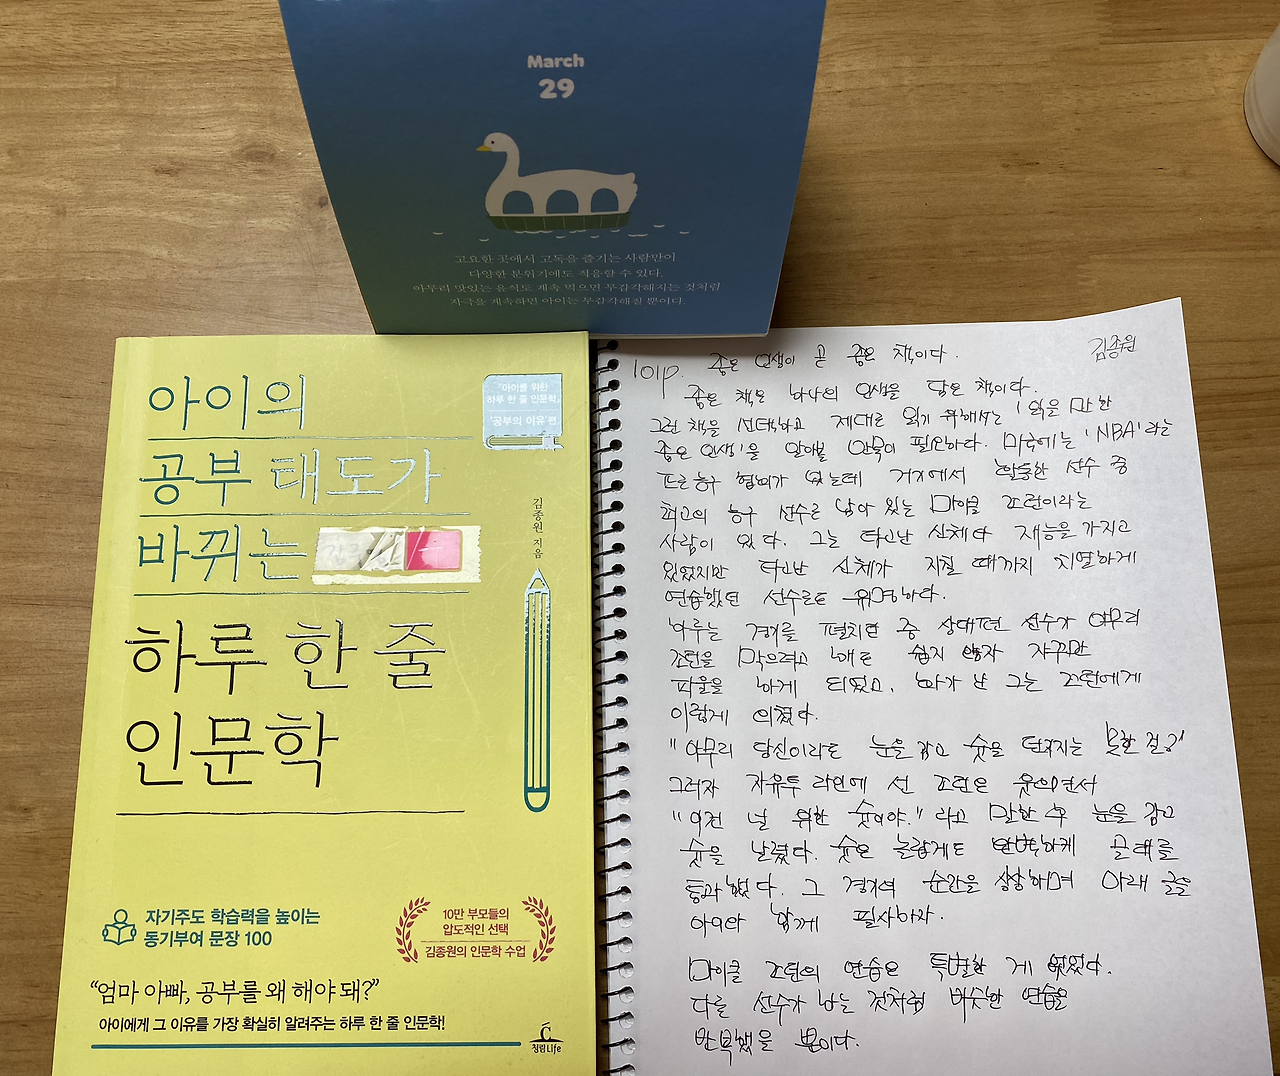 March
29
고요한 곳에서 고독을 즐기는 사람만이
다양한 분위기에도 적응할 수 있다.
아무리 맛있는 음식도 계속 먹으면 무감각해지는 것처럼
자극을 계속하면 아이는 무감각해질 뿐이다.
아이의
공부 태도가
바뀌는
하루 한 줄
인문학
"아이를 위한
하루 한 줄 인문학,
'공부의 이유'편
김종원 지음
자기주도 학습력을 높이는
동기부여 문장 100
10만 부모들의
압도적인 선택
김종원의 인문학 수업
"엄마 아빠, 공부를 왜 해야 돼?"
아이에게 그 이유를 가장 확실히 알려주는 하루 한 줄 인문학!
청림Life
101p. 좋은 인생이 곧 좋은 책이다. 김종원
좋은 책은 하나의 인생을 담은 책이다.
그런 책을 선택하고 제대로 읽기 위해서는 '읽을 만한
좋은 인생'을 알아볼 안목이 필요하다. 미국에는 'NBA'라는
프로 농구 협회가 있는데 거기에서 활동한 선수 중
최고의 농구 선수로 남아 있는 마이클 조던이라는
사람이 있다. 그는 타고난 신체와 재능을 가지고
있었지만 타고난 신체가 지칠 때까지 치열하게
연습했던 선수로도 유명하다.
하루는 경기를 펼치던 중 상대편 선수가 아무리
조던을 막으려고 해도 쉽지 않자 자꾸만
파울을 하게 되었고, 화가 난 그는 조던에게
이렇게 외쳤다.
"아무리 당신이라도 눈을 감고 슛을 던지지는 못할 걸?"
그러자 자유투 라인에 선 조던은 웃으면서
"이건 널 위한 슛이야." 라고 말한 후 눈을 감고
슛을 날렸다. 슛은 놀랍게도 완벽하게 골대를
통과했다. 그 경기의 순간을 상상하며 아래 글을
아이와 함께 필사하자.
마이클 조던의 연습은 특별한 게 없었다.
다른 선수가 하는 것처럼 비슷한 연습을
반복했을 뿐이다.